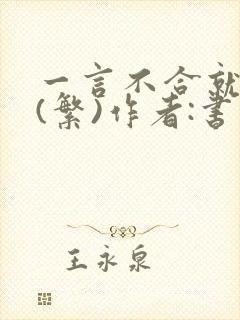 一言不合就
(繁)作者:書
王永泉